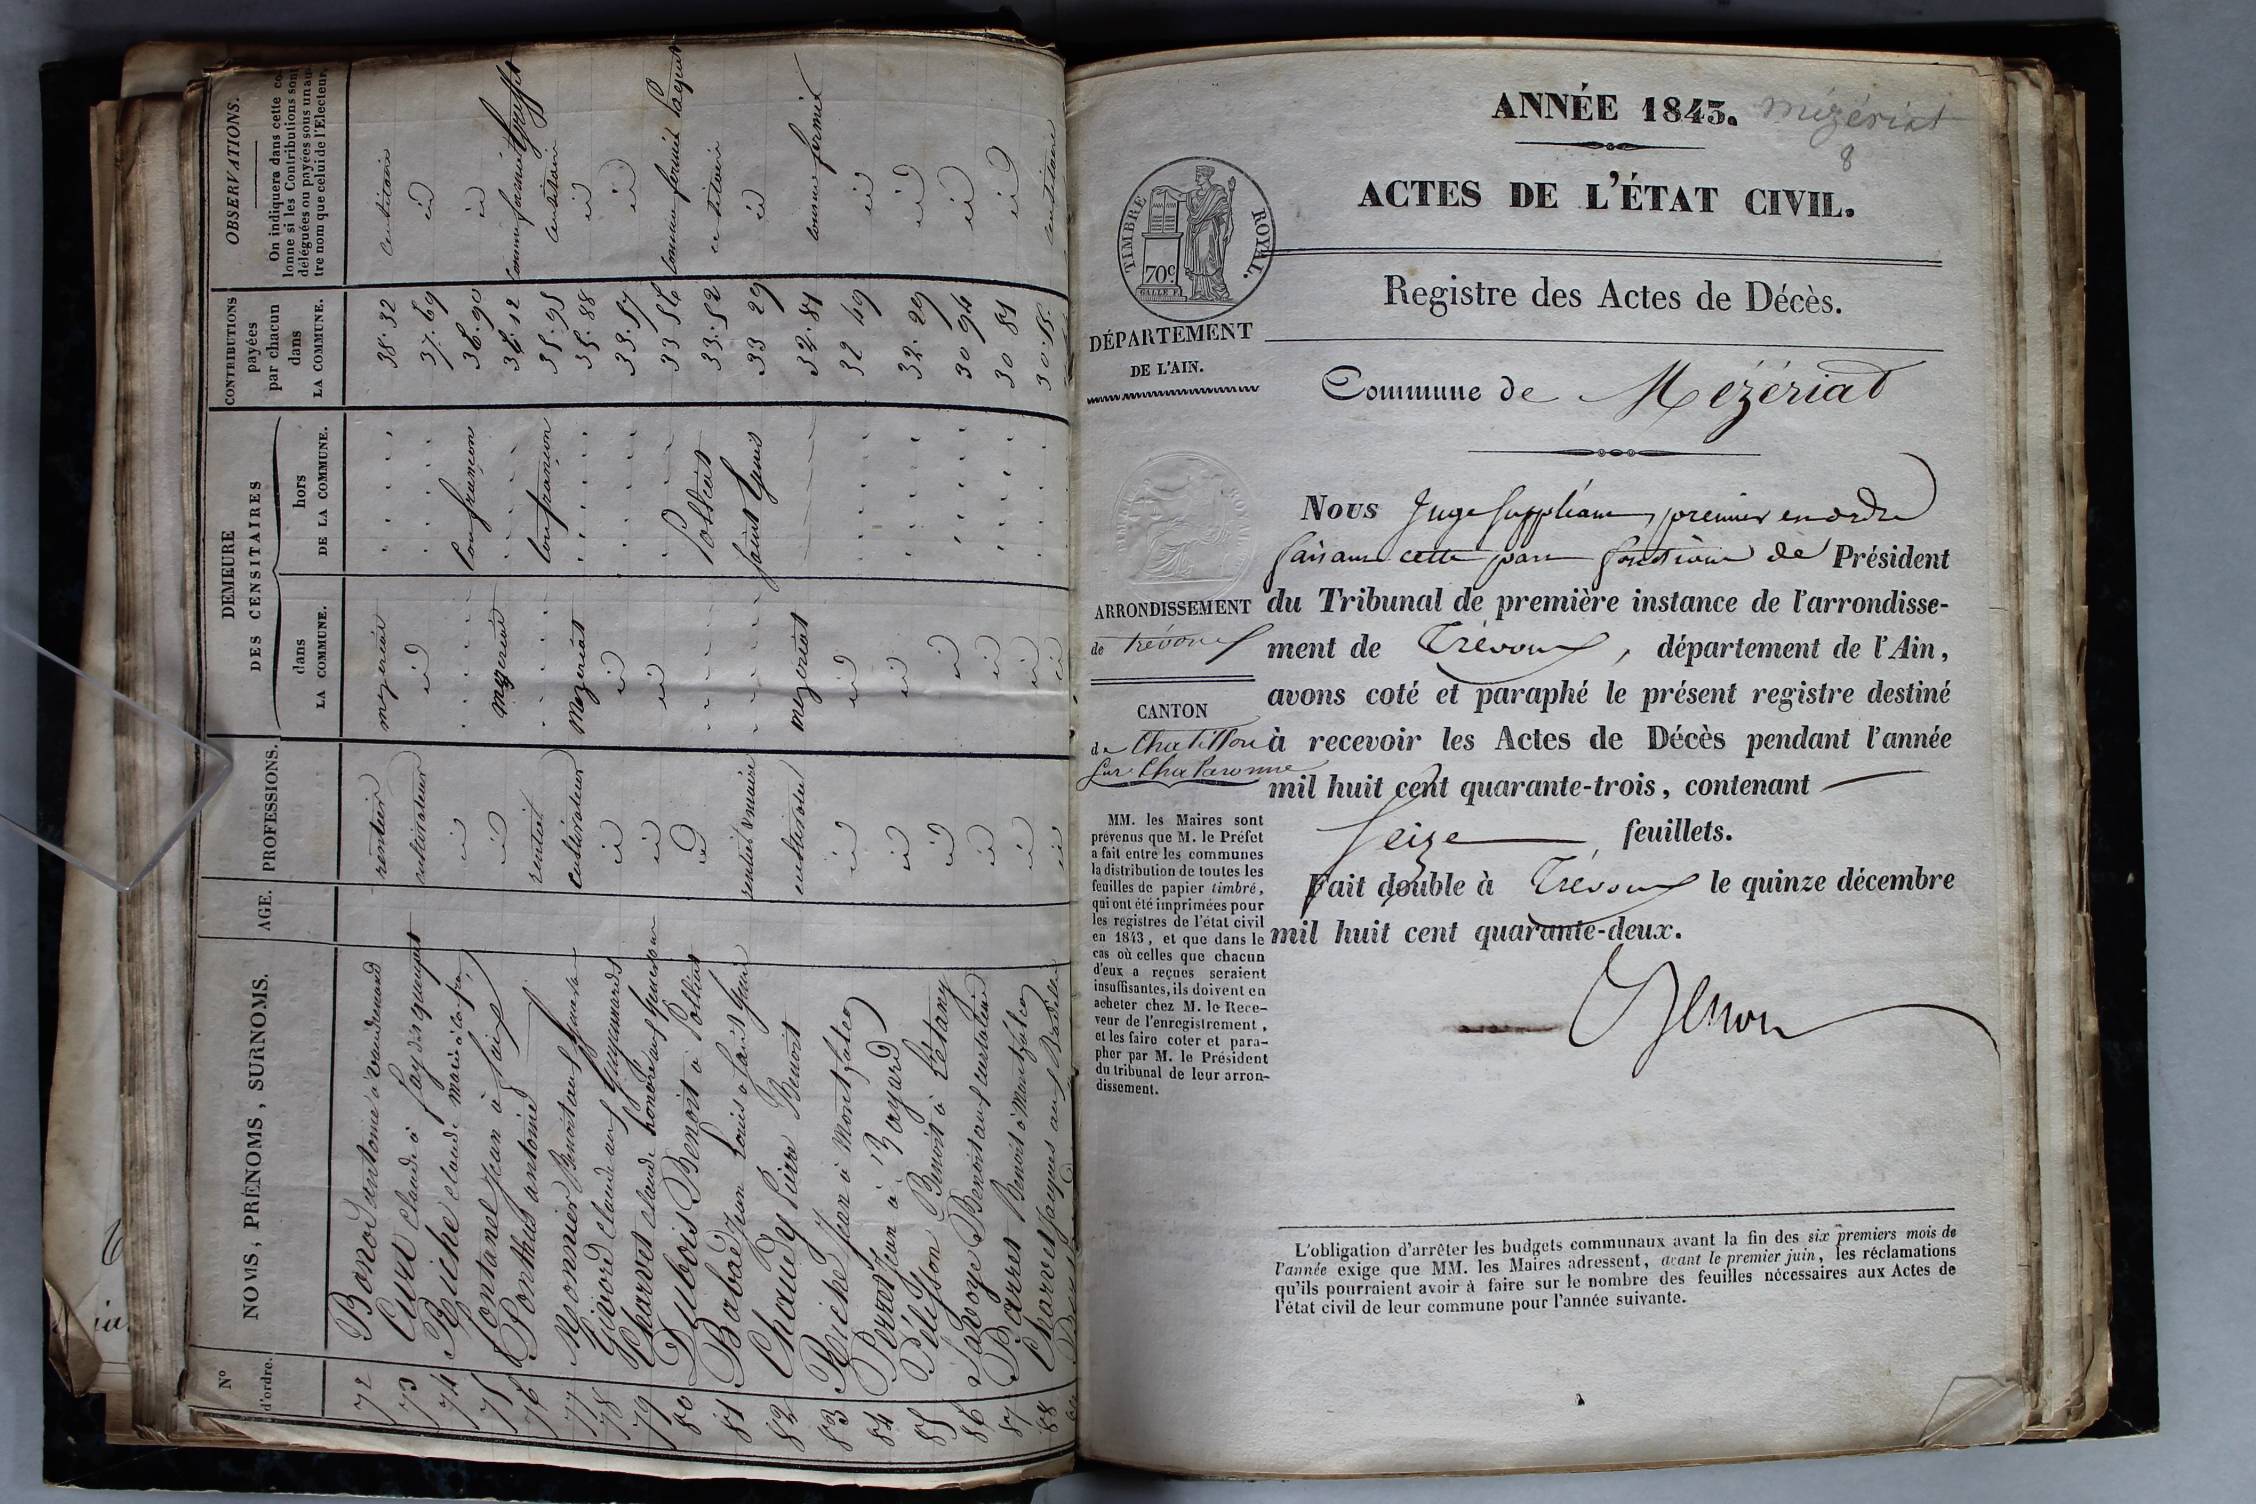 N°
d'ordre.
NOMS, PRÉNOMS, SURNOMS.
AGE.
PROFESSIONS.
DEMEURE
DES CENSITAIRES
dans
LA COMMUNE.
hors
DE LA COMMUNE.
CONTRIBUTIONS
payées
par chacun
dans
LA COMMUNE.
OBSERVATIONS.
On indiquera dans cette co-
lonne si les Contributions sont
déléguées ou payées sous un au-
tre nom que celui de l'Electeur.
72 Bonod antoine à vaudemard rentier mezeriat 38.32 censitaire
73 Curt claude à cultivateur id 37.69 id
74 Riche claude id Confrançon 36.90 id
75 Fontanel Jean à id mezeriat 36.12
76 Ponthus antoine rentier Confrançon 35.95 censitaire
77 Monnier Benoit aux cultivateur Mezeriat 35.88 id
78 Givord claude aux Guyennards id id 33.57 id
79 Charvet claude honoré aux id id 33 56 comme fermier
80 Dubois Benoit à Polliat id Polliat 33.52 censitaire
81 Babad Jean Louis à saint Genis rentier & maire saint Genis 33 29 id
82 Chaudy Pierre Benoit cultivateur mezeriat 32.81 comme fermier
83 Riche Jean à Montfalco id id 32 49 id
84 Perret Jean à Bayard id id 32.29 id
85 Pélisson Benoit à L'étang id id 30 94 id
86 Savoye Benoit aux id id 30 81 id
87 Barret Benoit à Montfalco id id 30.15
88 Charvet Jacques aux id id censitaire
ANNÉE 1843. Mézériat
8
ACTES DE L'ÉTAT CIVIL.
TIMBRE ROYAL.
70c
Registre des Actes de Décès.
DÉPARTEMENT
DE L'AIN.
Commune de Mézériat
Nous Juge suppléant, premier en ordre
faisant cette part fonctions de Président
ARRONDISSEMENT
de trévoux
du Tribunal de première instance de l'arrondisse-
ment de Trévoux, département de l'Ain,
avons coté et paraphé le présent registre destiné
à recevoir les Actes de Décès pendant l'année
mil huit cent quarante-trois, contenant
seize feuillets.
Fait double à Trévoux le quinze décembre
mil huit cent quarante-deux.
CANTON
de Chatillon
sur Chalaronne
MM. les Maires sont
prévenus que M. le Préfet
a fait entre les communes
la distribution de toutes les
feuilles de papier timbré,
qui ont été imprimées pour
les registres de l'état civil
en 1843, et que dans le
cas où celles que chacun
d'eux a reçues seraient
insuffisantes, ils doivent en
acheter chez M. le Rece-
veur de l'enregistrement,
et les faire coter et para-
pher par M. le Président
du tribunal de leur arron-
dissement.
L'obligation d'arrêter les budgets communaux avant la fin des six premiers mois de
l'année exige que MM. les Maires adressent, avant le premier juin, les réclamations
qu'ils pourraient avoir à faire sur le nombre des feuilles nécessaires aux Actes de
l'état civil de leur commune pour l'année suivante.